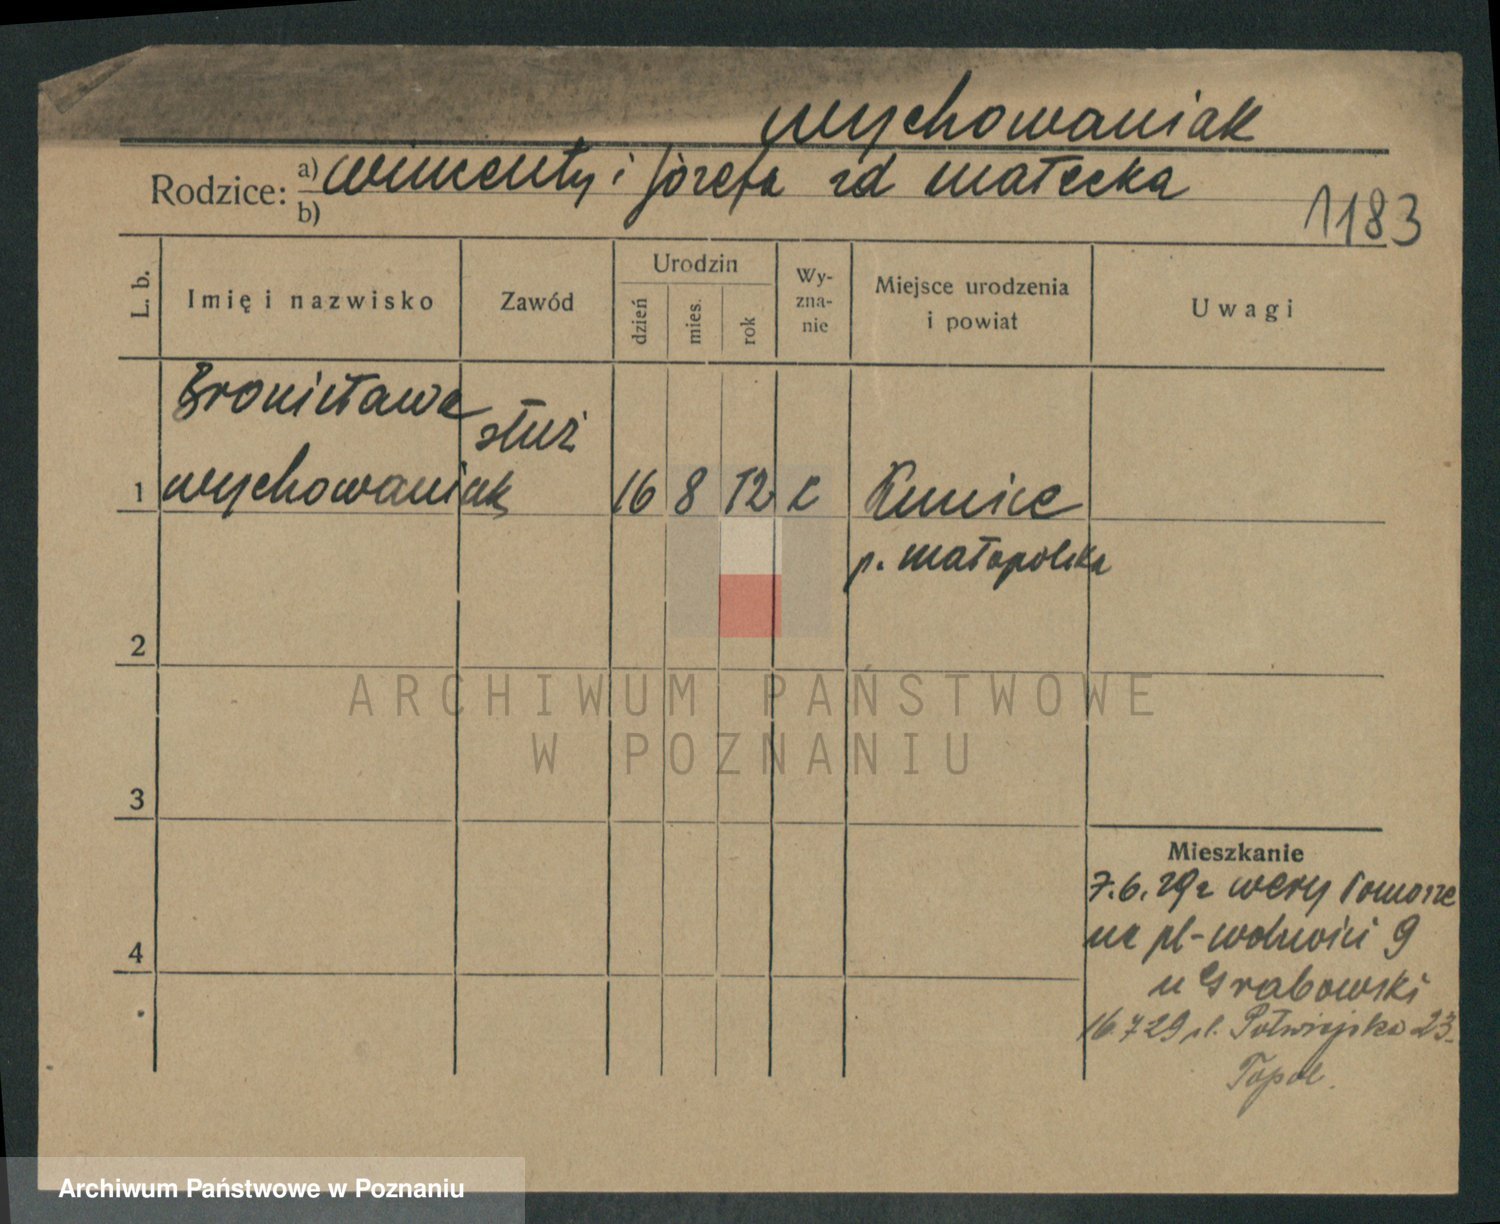 Wychowaniak
Rodzice: a) Wincenty i Józefa zd Małecka
b)
1183
L. b.
Imię i nazwisko
Zawód
Urodzin
dzień
mies.
rok
Wy-
zna-
nie
Miejsce urodzenia
i powiat
Uwagi
Bronisława
służ
1 Wychowaniak 16 8 12 k Kunice
p. Małopolska
2
ARCHIWUM PAŃSTWOWE
W POZNANIU
3
Mieszkanie
7.6.29r
na pl-wolności 9
4
u Grabowski
16.7.29 ul. Półwiejska 23
Archiwum Państwowe w Poznaniu